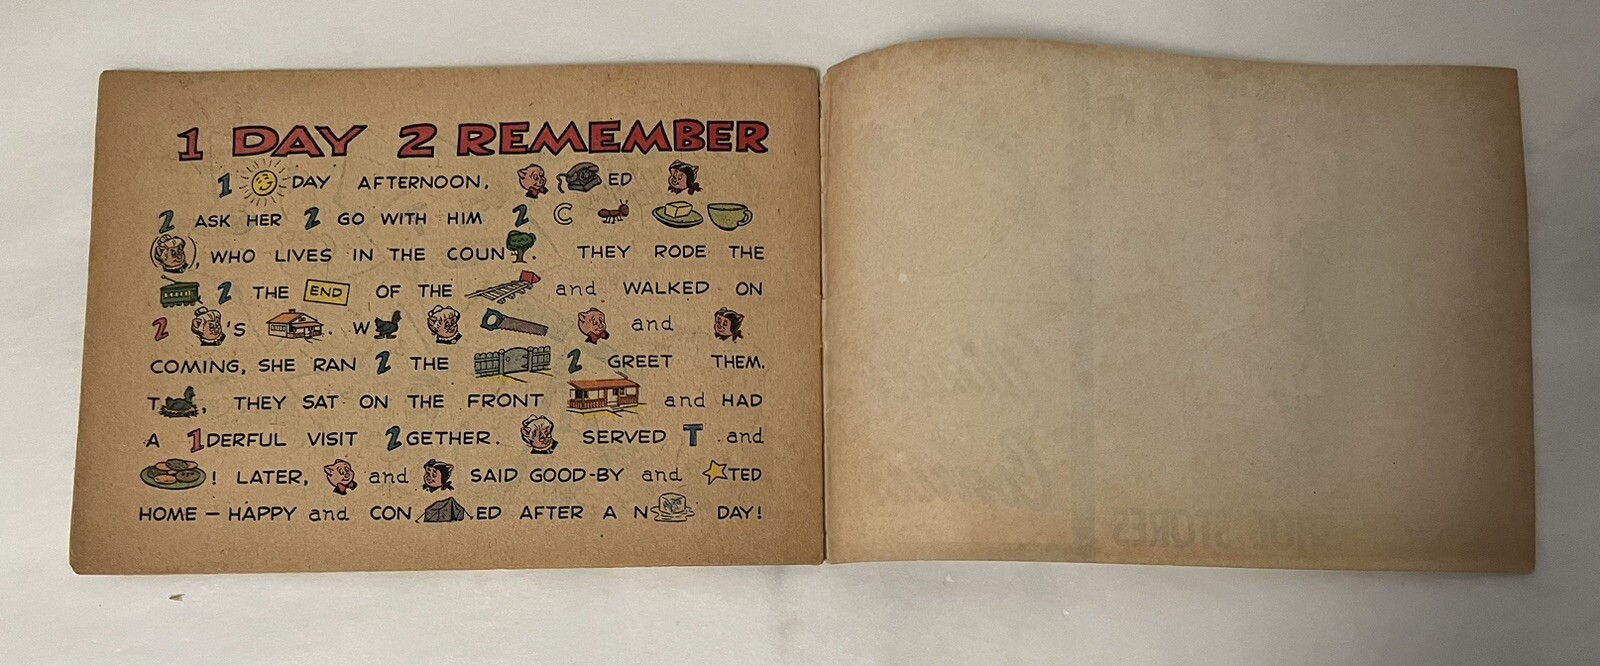 1 DAY 2 REMEMBER
1 DAY AFTERNOON, ED
2 ASK HER 2 GO WITH HIM 2 C
, WHO LIVES IN THE COUN . THEY RODE THE
2 THE END OF THE and WALKED ON
2 'S . W and
COMING, SHE RAN 2 THE 2 GREET THEM.
T , THEY SAT ON THE FRONT and HAD
A 1DERFUL VISIT 2GETHER. SERVED T and
! LATER, and SAID GOOD-BY and TED
HOME — HAPPY and CON ED AFTER A N DAY!
SHOE STORES